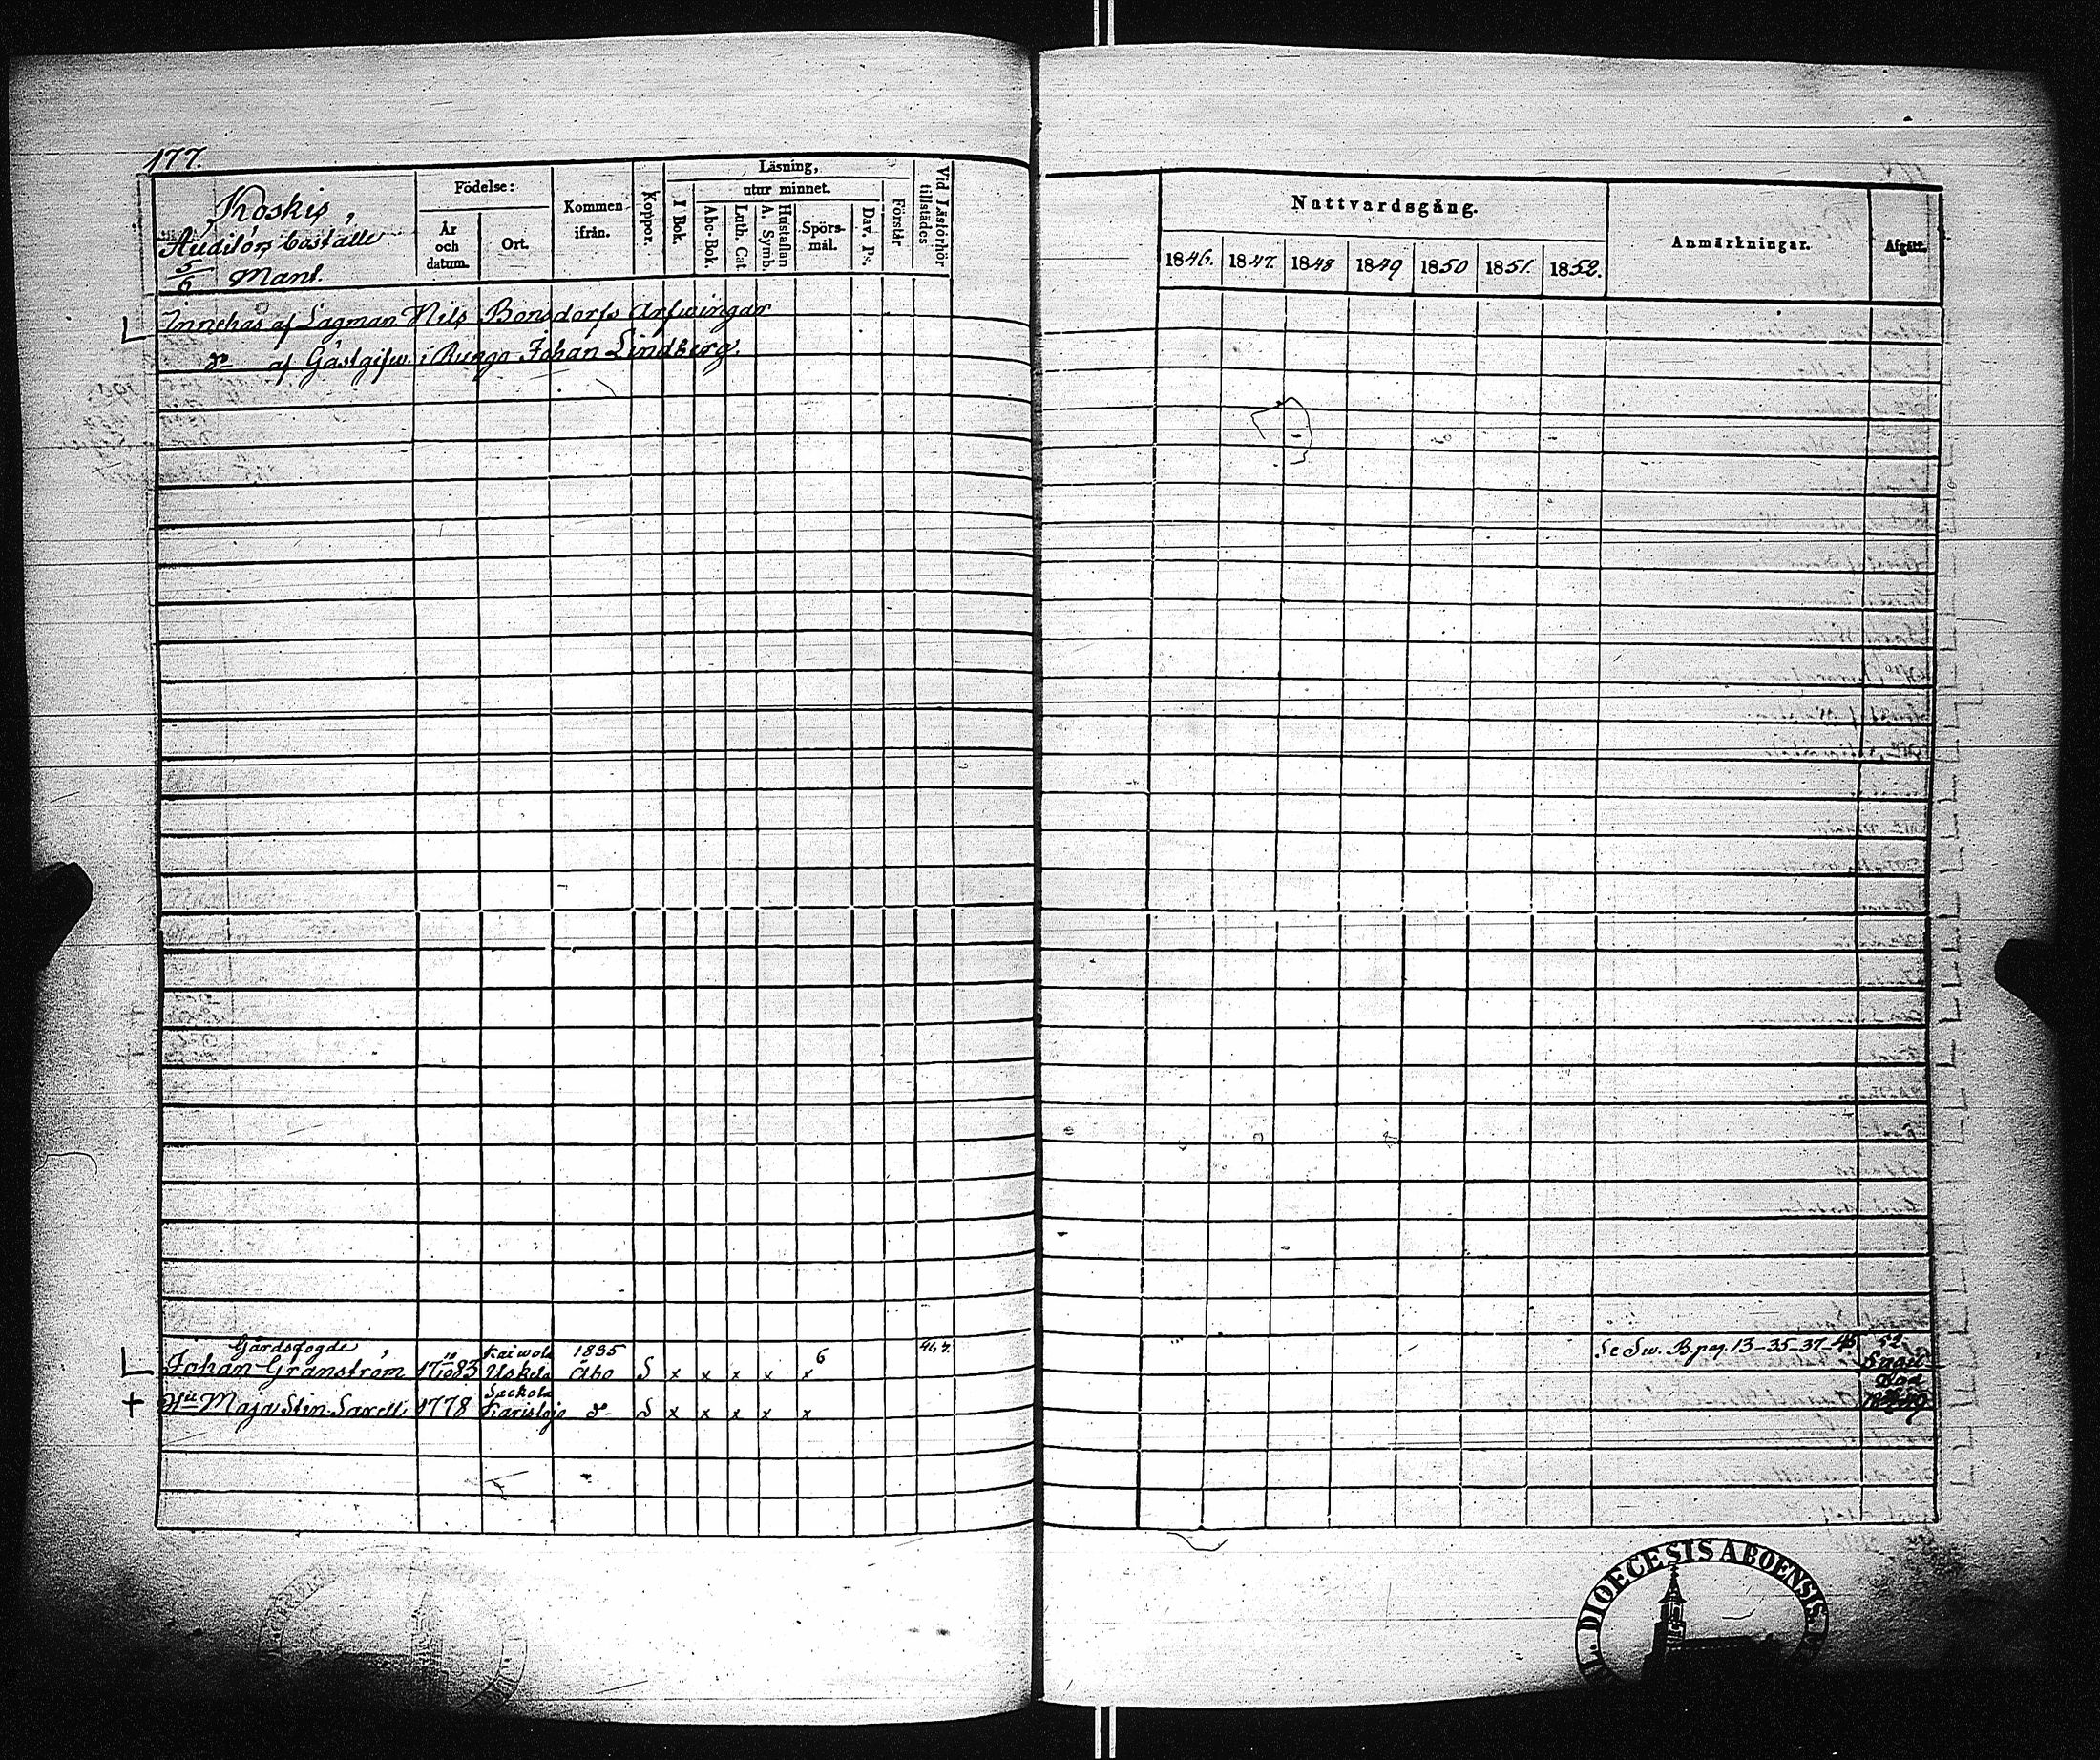 177.
Koskis,
Auditörs boställe
5/6 Mant.
Födelse:
År och datum.
Ort.
Kommen ifrån.
Koppor.
Läsning,
utur minnet.
I Bok.
Abc-Bok.
Luth. Cat.
Hustaflan A. Symb.
Spörsmål.
Dav. Ps.
Förstår
Vid Läsförhör tillstädes
Nattvardsgång.
1846. 1847. 1848 1849 1850 1851. 1852.
Anmärkningar.
Afgått.
Innehas af Lagman Nils Bonsdorfs Arfwingar
do af Gästgifw. i Runga Johan Lindberg.
Gårdsfogde Kaiwola 1835 6 467. Se Sw. B. pag. 13-35-37-45 52
Johan Granström 17 10/10 83 Uskela Åbo S x x x x x
Sackola Död
Hu Maja Stin Saxell 1778 Karislojo do S x x x x x
L. DIOECESIS ABOENSIS.